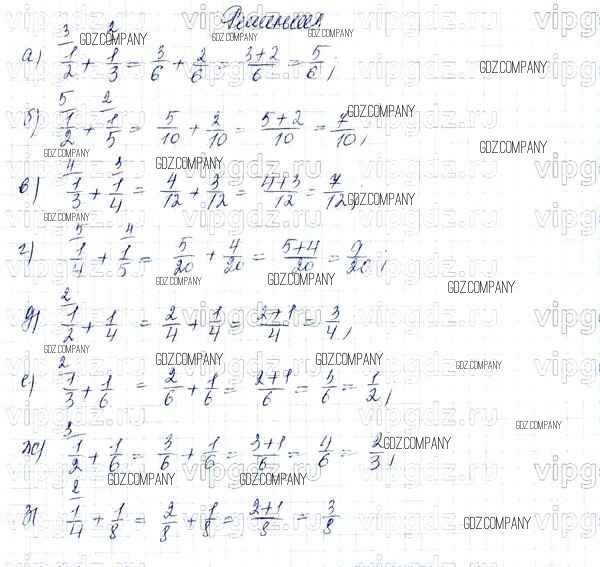 Решение
а) 3/ 1/2 + 2/ 1/3 = 3/6 + 2/6 = 3+2/6 = 5/6;
б) 5/ 1/2 + 2/ 1/5 = 5/10 + 2/10 = 5+2/10 = 7/10;
в) 4/ 1/3 + 3/ 1/4 = 4/12 + 3/12 = 4+3/12 = 7/12;
г) 5/ 1/4 + 4/ 1/5 = 5/20 + 4/20 = 5+4/20 = 9/20;
д) 2/ 1/2 + 1/4 = 2/4 + 1/4 = 2+1/4 = 3/4;
е) 2/ 1/3 + 1/6 = 2/6 + 1/6 = 2+1/6 = 3/6 = 1/2;
ж) 3/ 1/2 + 1/6 = 3/6 + 1/6 = 3+1/6 = 4/6 = 2/3;
з) 2/ 1/4 + 1/8 = 2/8 + 1/8 = 2+1/8 = 3/8
GDZ.COMPANY
vipgdz.ru